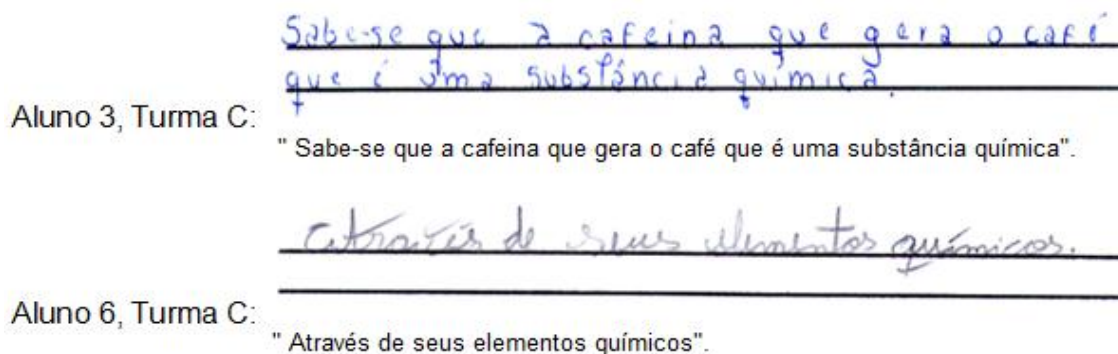 Sabe-se que a cafeina que gera o café
que é uma substância química.
Aluno 3, Turma C:
" Sabe-se que a cafeina que gera o café que é uma substância química".
Através de seus elementos químicos.
Aluno 6, Turma C:
" Através de seus elementos químicos".